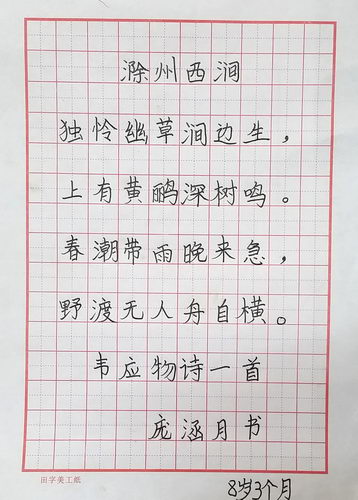 滁州西涧
独怜幽草涧边生，
上有黄鹂深树鸣。
春潮带雨晚来急，
野渡无人舟自横。
韦应物诗一首
庞涵月书
田字美工纸
8岁3个月